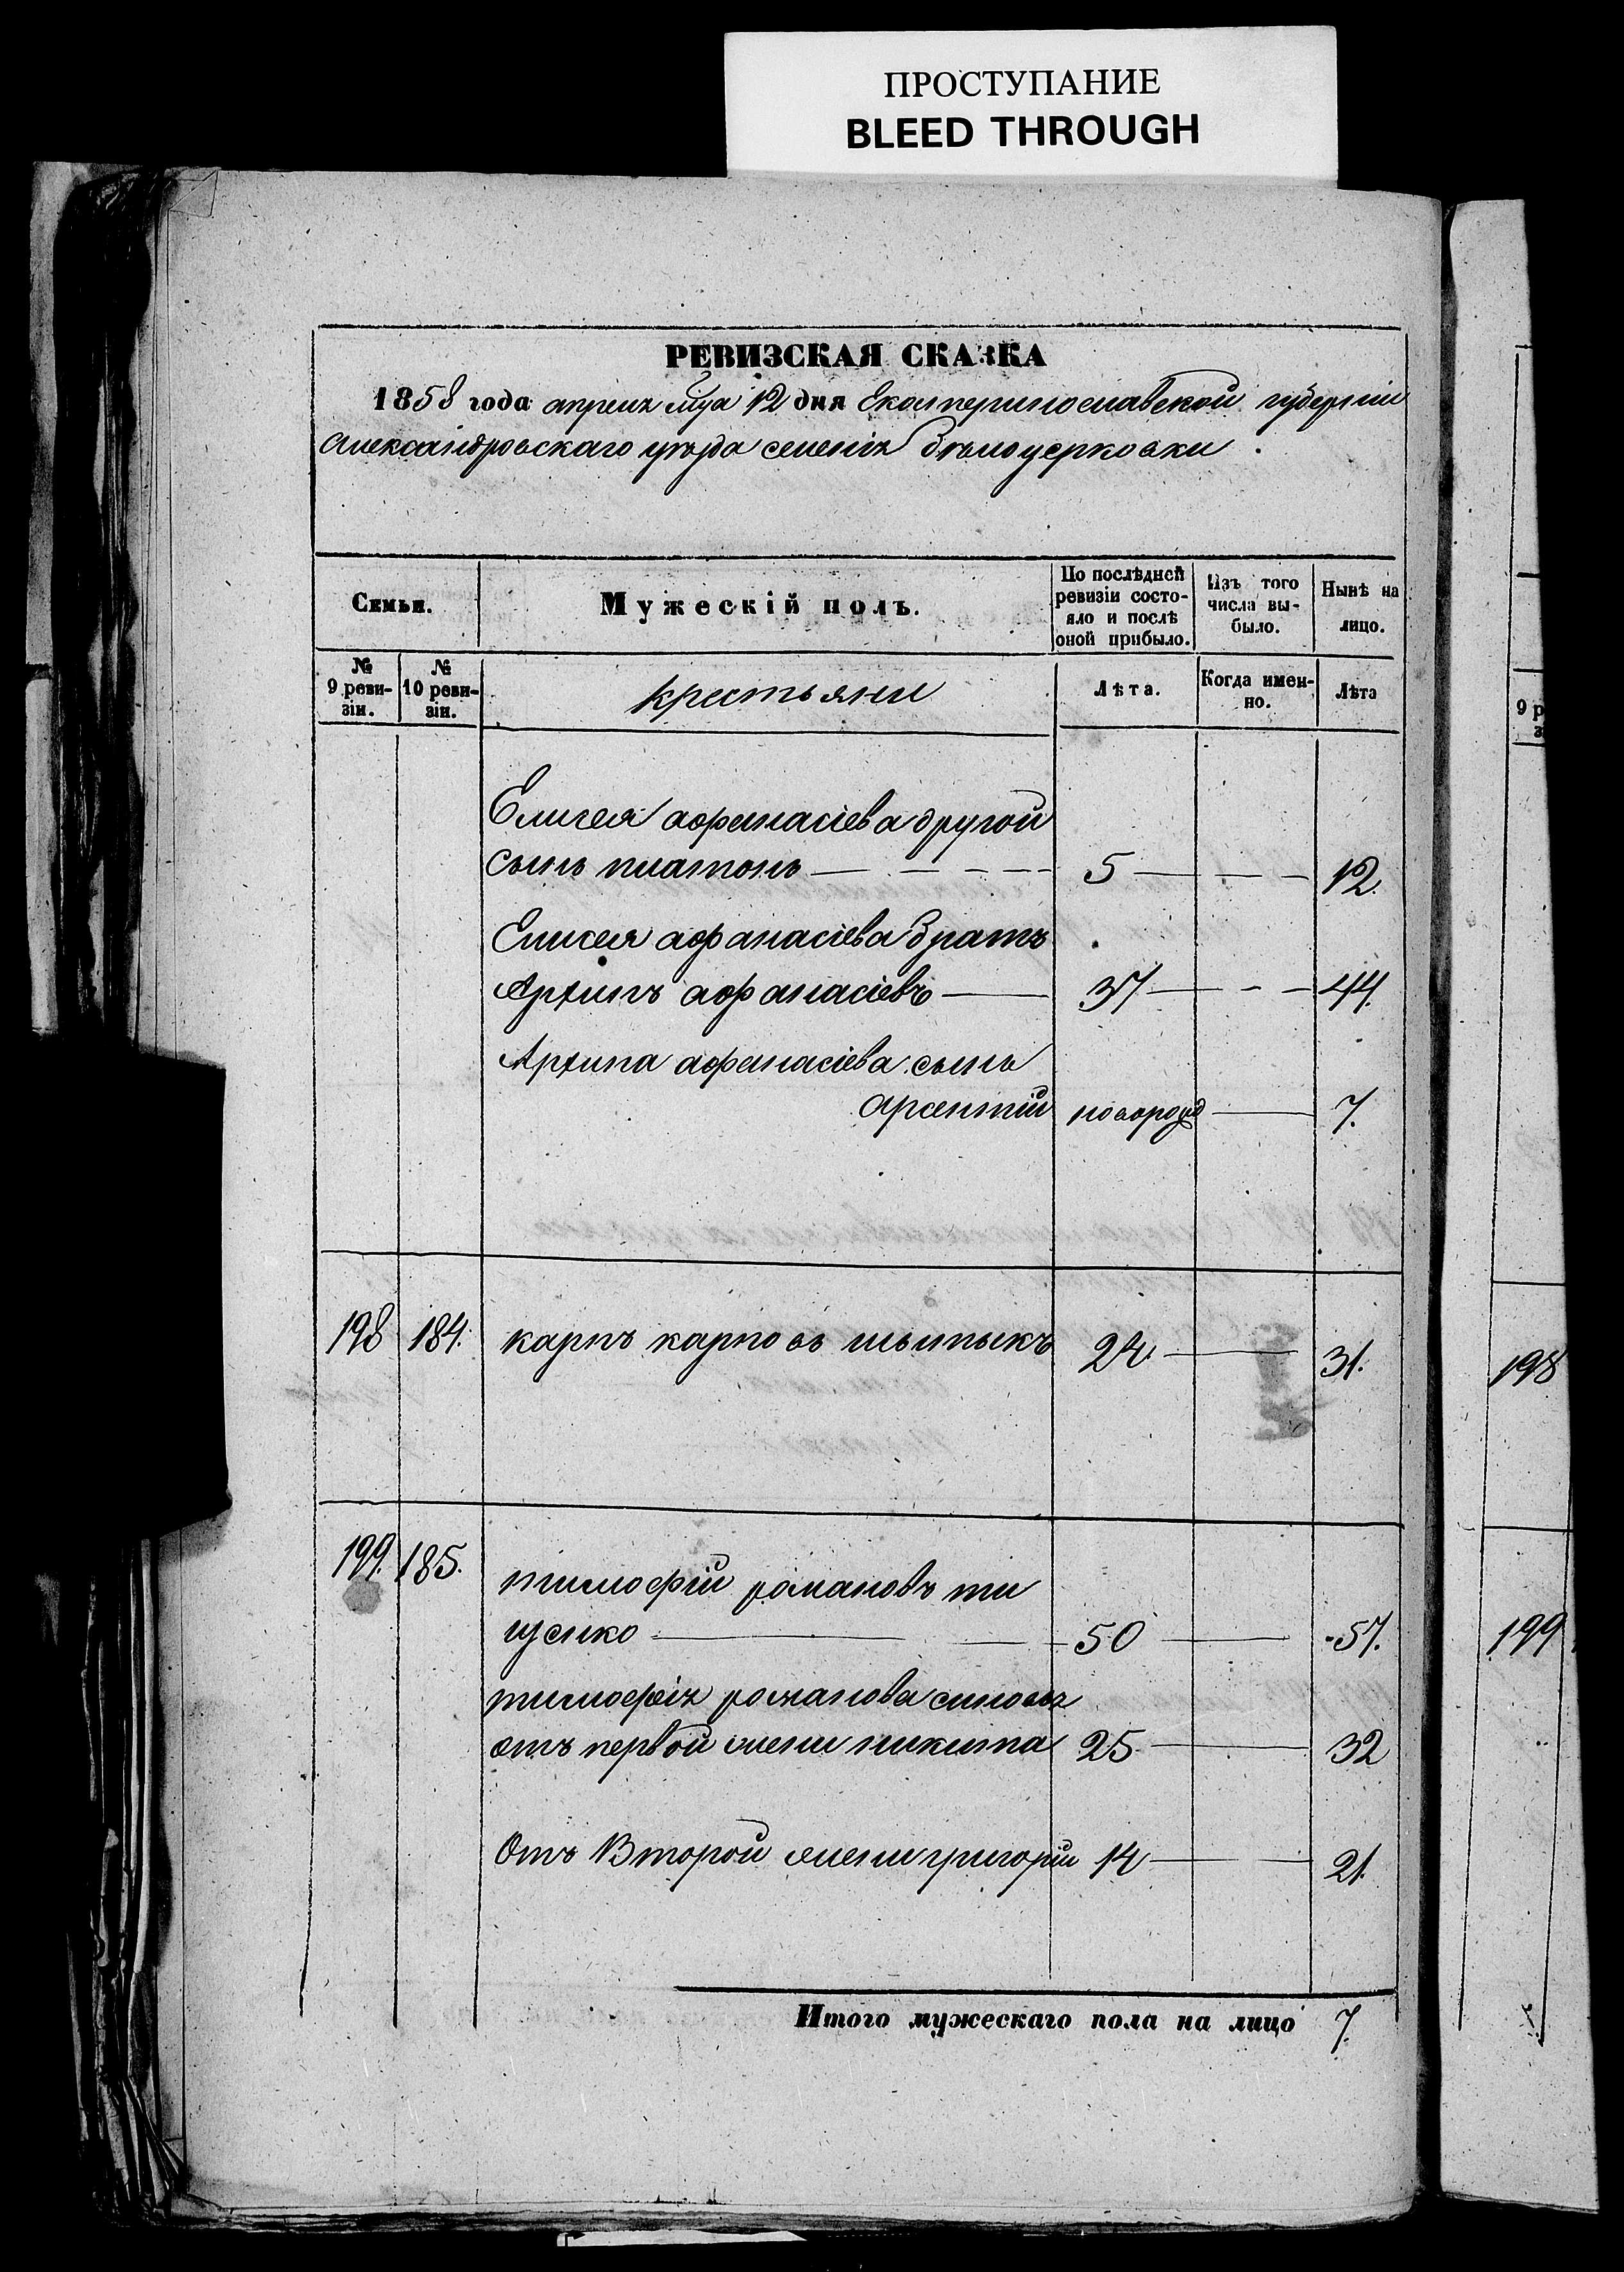 ПРОСТУПАНИЕ
BLEED THROUGH
РЕВИЗСКАЯ СКАЗКА
1858 года апреля мца 12 дня Екатеринославской губернии
александровскаго уезда селения белоцерковки.
Семьи.
Мужескій полъ.
По послѣдней ревизіи состояло и послѣ оной прибыло.
Изъ того числа выбыло.
Нынѣ на лицо.
№ 9 ревизіи.
№ 10 ревизіи.
крестьяни
Лѣта.
Когда именно.
Лѣта
Елисея афанасіева другой
сынъ платонъ 5 12.
Елисея афанасіева братъ
Архипъ афанасіевъ 37 44.
Архипа афанасіева сынъ
арсентій новорожд 7.
198 184. карпъ карповъ 24. 31.
199. 185. тимофій романовъ ти
щенко 50 57.
тимофія романова синовя
отъ первой жени никита 25 32
Отъ Второй жени григорій 14 21.
Итого мужескаго пола на лицо 7.
9 р
198
199